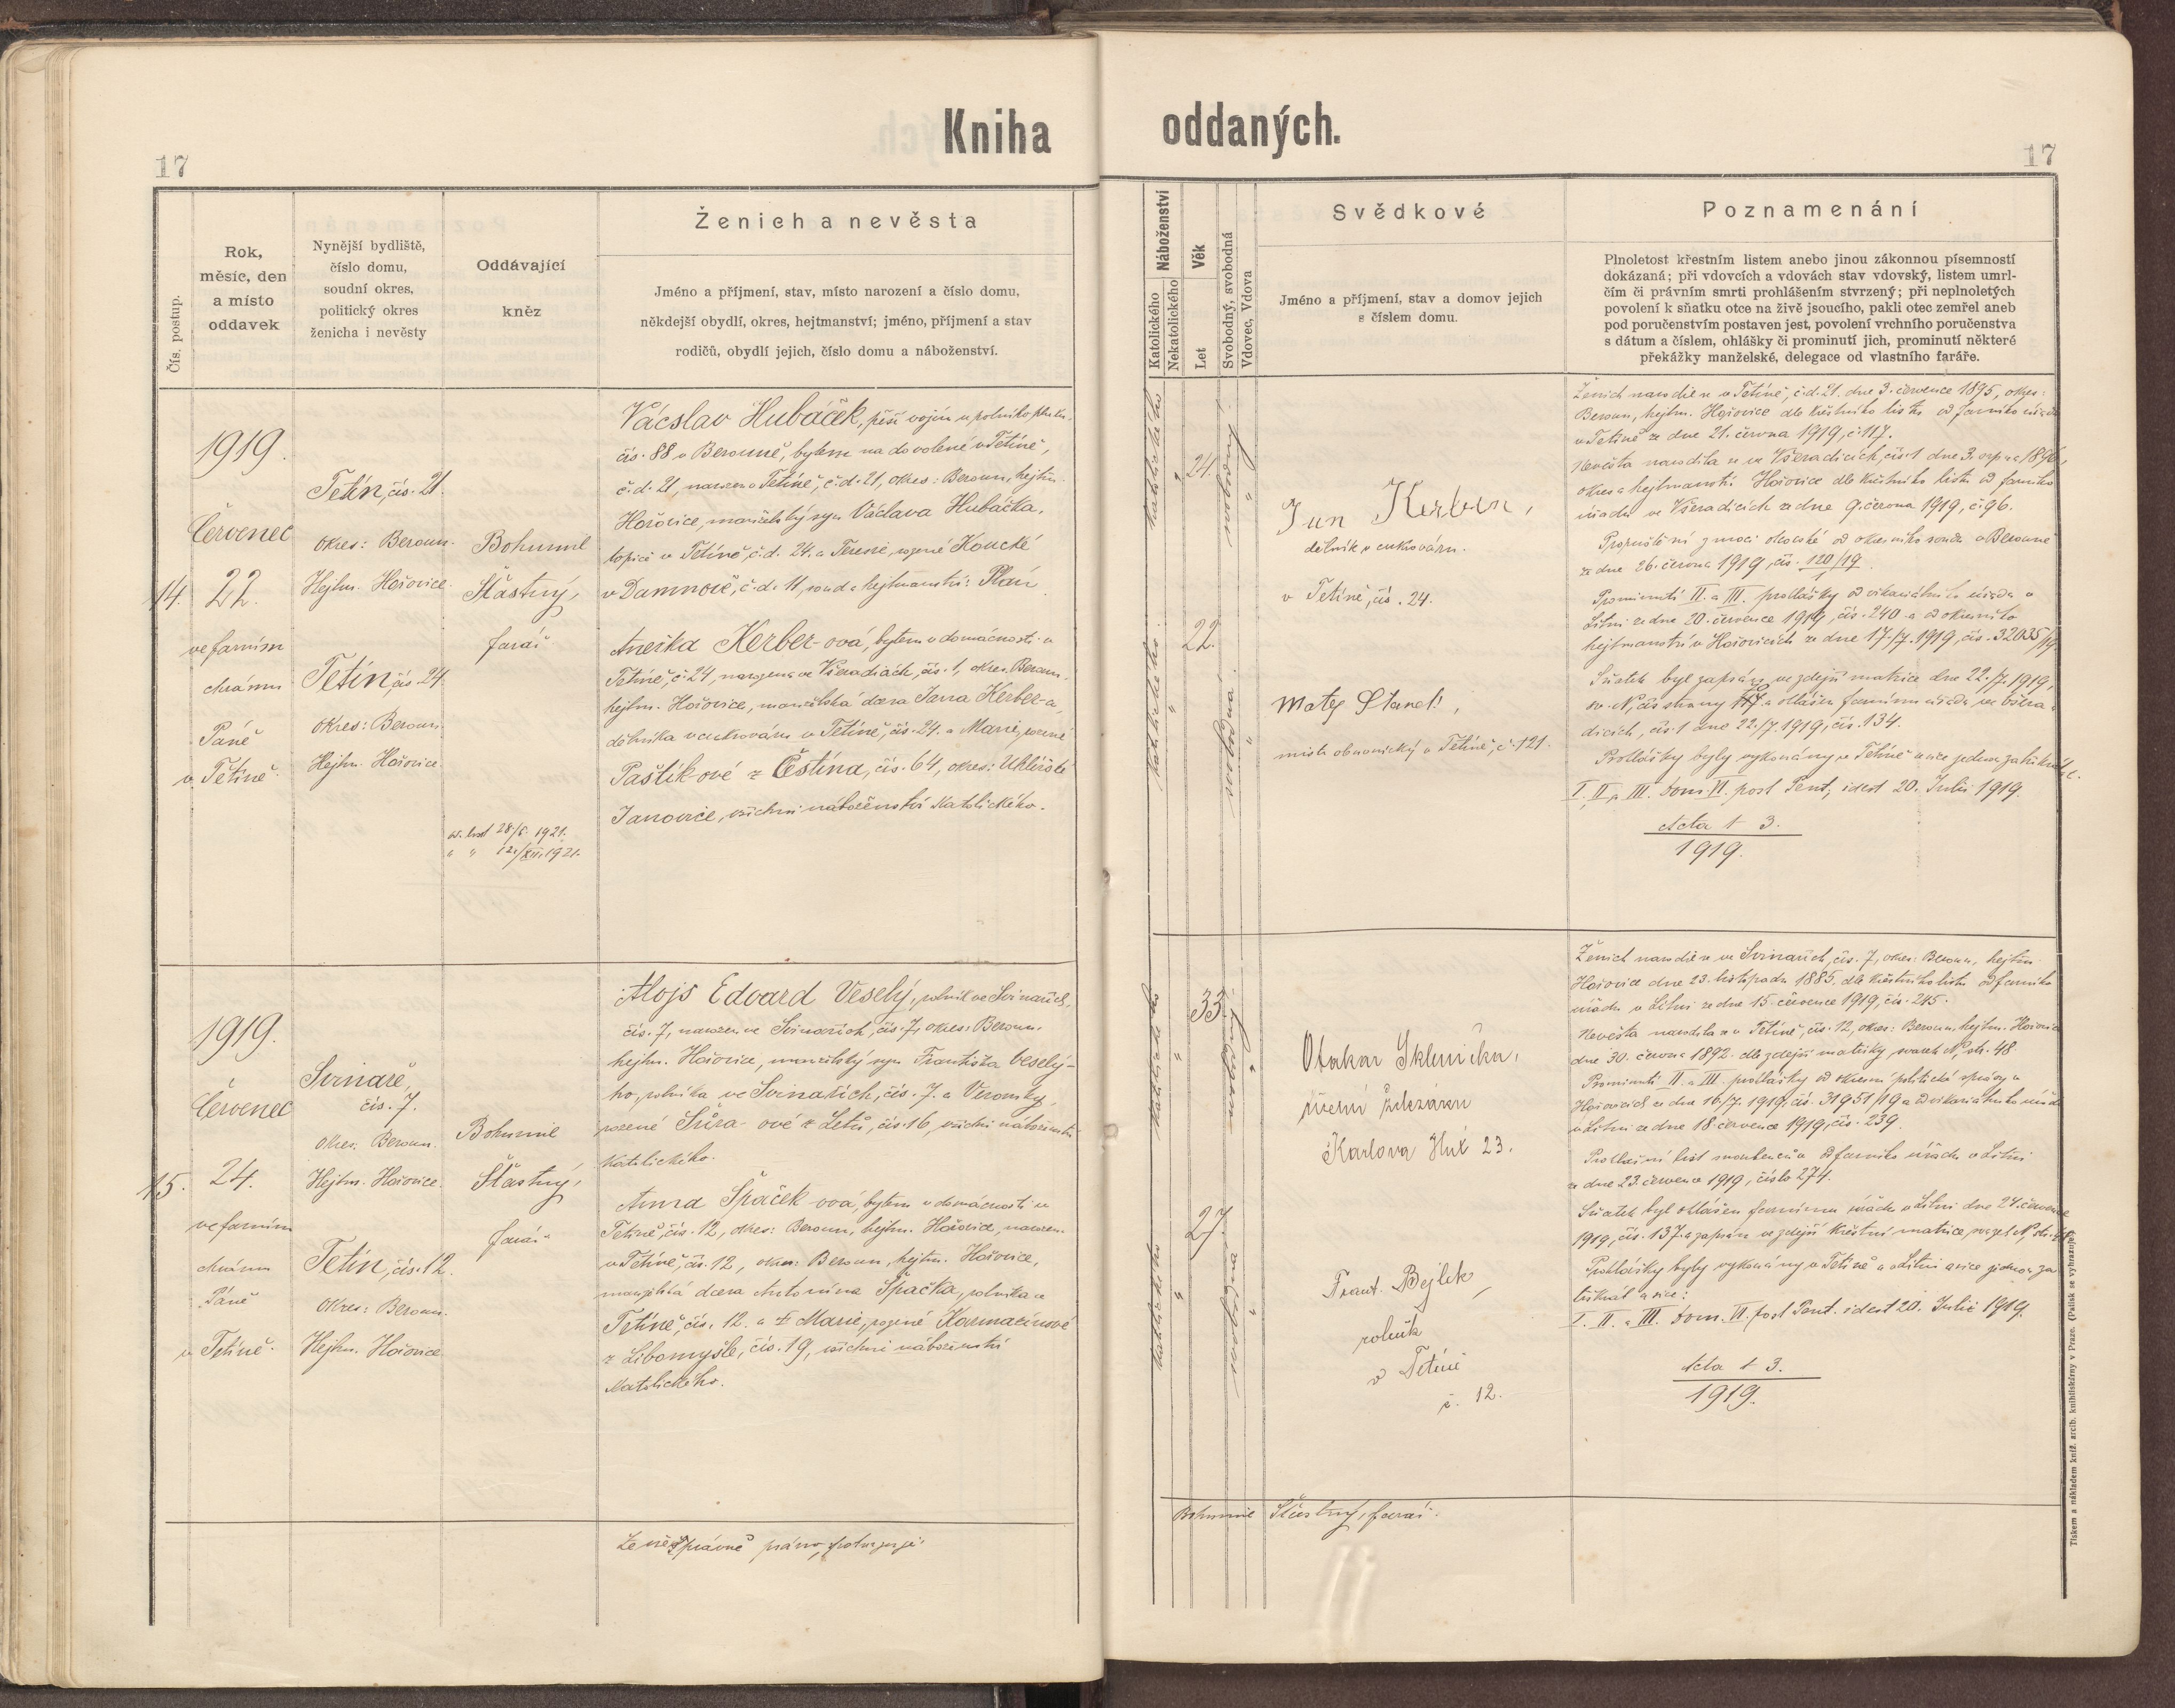 Kniha oddaných.
17
17
Čís. postup.
Rok,
měsíc, den
a místo
oddavek
Nynější bydliště,
číslo domu,
soudní okres,
politický okres
ženicha i nevěsty
Oddávající
kněz
Ženich a nevěsta
Jméno a příjmení, stav, místo narození a číslo domu,
někdejší obydlí, okres, hejtmanství; jméno, příjmení a stav
rodičů, obydlí jejich, číslo domu a náboženství.
Náboženství
Katolického
Nekatolického
Věk
Let
Svobodný, svobodná
Vdovec, Vdova
Svědkové
Jméno a příjmení, stav a domov jejich
s číslem domu.
Poznamenání
Plnoletost křestním listem anebo jinou zákonnou písemností
dokázaná; při vdovcích a vdovách stav vdovský, listem umrl-
čím či právním smrti prohlášením stvrzený; při neplnoletých
povolení k sňatku otce na živě jsoucího, pakli otec zemřel aneb
pod poručenstvím postaven jest, povolení vrchního poručenstva
s dátum a číslem, ohlášky či prominutí jich, prominutí některé
překážky manželské, delegace od vlastního faráře.
14.
1919.
Červenec
22.
ve farním
chrámu
Páně
v Tetíně.
Tetín, čís. 21.
Okres: Beroun.
Hejtm. Hořovice.
Tetín, čís. 24.
Okres: Beroun.
Hejtm. Hořovice.
Bohumil
Šťastný,
farář
28/8. 1921.
" " 12./XII. 1921.
Václav Hubáček, pěší vojín u polního pluku
čís. 88 v Berouně, bytem na dovolené v Tetíně,
č. d. 21, narozen v Tetíně, č. d. 21, okres: Beroun, hejtm.
Hořovice, manželský syn Václava Hubáčka,
topiče v Tetíně, č. d. 24. a Terezie, rozené Koucké
v Damnově, č. d. 11, soud a hejtmanství: Planá
Anežka Kerber-ová, bytem v domácnosti v
Tetíně, č. 24, narozena ve Všeradicích, čís. 1, okres Beroun,
hejtm. Hořovice, manželská dcera Jana Kerber-a,
dělníka v cukrováru v Tetíně, čís. 24. a Marie, rozené
Paštik-ové z Čestína, čís. 64, okres: Uhlířské
Janovice, všichni náboženství katolického.
katolického
"
24.
svobodný
"
katolického
"
22.
svobodná
"
Jan Kerber,
dělník v cukrováru.
v Tetíně, čís. 24.
Matěj Staněk,
mistr obuvnický v Tetíně, č. 121.
Ženich narodil se v Tetíně, č. d. 21. dne 3. července 1895, okres:
Beroun, hejtm. Hořovice dle křestního listu od farního úřadu
v Tetíně ze dne 21. června 1919, č. 117.
Nevěsta narodila se ve Všeradicích, čís. 1 dne 3. srpna 1896,
okres a hejtmanství Hořovice dle křestního listu od farního
úřadu ve Všeradicích ze dne 9. června 1919, č. 96.
Propuštění z moci otcovské od okresního soudu v Berouně
ze dne 26. června 1919, čís. 120/19
1
Prominutí II. a III. prohlášky od vikariátního úřadu v
Litni ze dne 20. července 1919, čís. 240 a od okresního
hejtmanství v Hořovicích ze dne 17/7. 1919, čís. 32035/19.
Sňatek byl zapsán ve zdejší matrice dne 22./7. 1919,
a ohlášen farnímu úřadu ve Všera-
dicích, čís. 1 dne 22./7. 1919, čís. 134.
Prohlášky byly vykonány v Tetíně a sice jednou za třikráte:
I. II. a III. Dom. VI. post Pent., idest 20. Julii 1919.
Acta t 3.
1919.
15.
1919.
Červenec
24.
ve farním
chrámu
Páně
v Tetíně.
Svinaře,
čís. 7.
Okres: Beroun.
Hejtm. Hořovice.
Tetín, čís. 12.
Okres: Beroun.
Hejtm. Hořovice
Bohumil
Šťastný,
farář
Alojs Edvard Veselý, rolník ve Svinařích,
čís. 7, narozen ve Svinařích, čís. 7, okres: Beroun,
hejtm. Hořovice, manželský syn Františka Veselý-
ho, rolníka ve Svinařích, čís. 7. a Veroniky,
rozené Šůra-ové z Letů, čís. 16, všichni náboženství
katolického.
Anna Špaček-ová, bytem v domácnosti v
Tetíně, čís. 12, okres: Beroun, hejtm. Hořovice, narozena
v Tetíně, čís. 12, okres: Beroun, hejtm. Hořovice,
manželská dcera Antonína Špačka, rolníka v
Tetíně, čís. 12. a † Marie, rozené Karmazínové
z Libomyšle, čís. 19, všichni náboženství
katolického.
katolického
"
33.
svobodný
"
katolického
"
27.
svobodná
"
Otakar Sklenička,
účetní železáren
Karlova Huť 23.
Frant. Bejlek,
rolník
v Tetíně
č. 12.
Ženich narodil se ve Svinařích, čís. 7, okres: Beroun, hejtm.
Hořovice dne 23. listopadu 1885. dle křestního listu od farního
úřadu v Litni ze dne 15. července 1919, čís. 245.
Nevěsta narodila se v Tetíně, čís. 12, okres: Beroun, hejtm. Hořovice
dne 30. června 1892. dle zdejší matriky svazek N, str. 48
Prominutí II. a III. prohlášky od okresní politické správy v
Hořovicích ze dne 16./7. 1919, čís. 31951/19 a od vikariátního úřadu
v Litni ze dne 18. července 1919, čís. 239.
Prohlašní list snoubenců od farního úřadu v Litni
ze dne 23. července 1919, číslo 274.
Sňatek byl ohlášen farnímu úřadu v Litni dne 24. července
1919, čís. 137. a zapsán ve zdejší křestní matrice svazek N, str.
Prohlášky byly vykonány v Tetíně a v Litni a sice jednou za
třikrát a sice:
I. II. a III. Dom. VI. post Pent. idest 20. Julii 1919.
Acta t 3.
1919.
Že vše správně psáno, potvrzuje:
Bohumil Šťastný, farář.
Tiskem a nákladem kníž. arcib. knihtiskárny v Praze. (Patisk se vyhrazuje.)